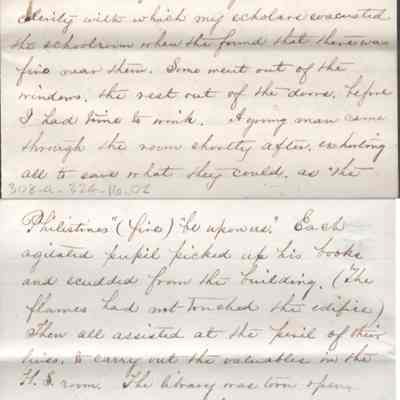 clerity with which my scholars evacuated
the schoolroom when the found that there was
fire near them. Some went out of the
windows, the rest out of the doors, before
I had time to wink. A young man came
through the room shortly after, exhorting
all to save what they could, as "the
308-a-326-16.02
Philistines" (fire) "be upon us." Each
agitated pupil picked up his books
and scudded from the building. (The
flames had not touched the edifice)
Then all assisted at the peril of their
lives, to carry out the valuables in the
H. S. room. The library was torn open